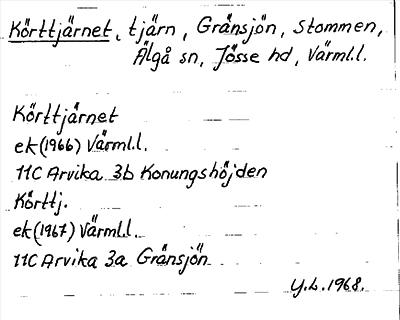 Körttjärnet, tjärn, Gränsjön, Stommen,
Älgå sn, Jösse hd, Värml.l.
Körttjärnet
ek (1966) Värml.l.
11C Arvika 3b Konungshöjden
Körttj.
ek (1967) Värml.l.
11C Arvika 3a Gränsjön
Y.L. 1968.